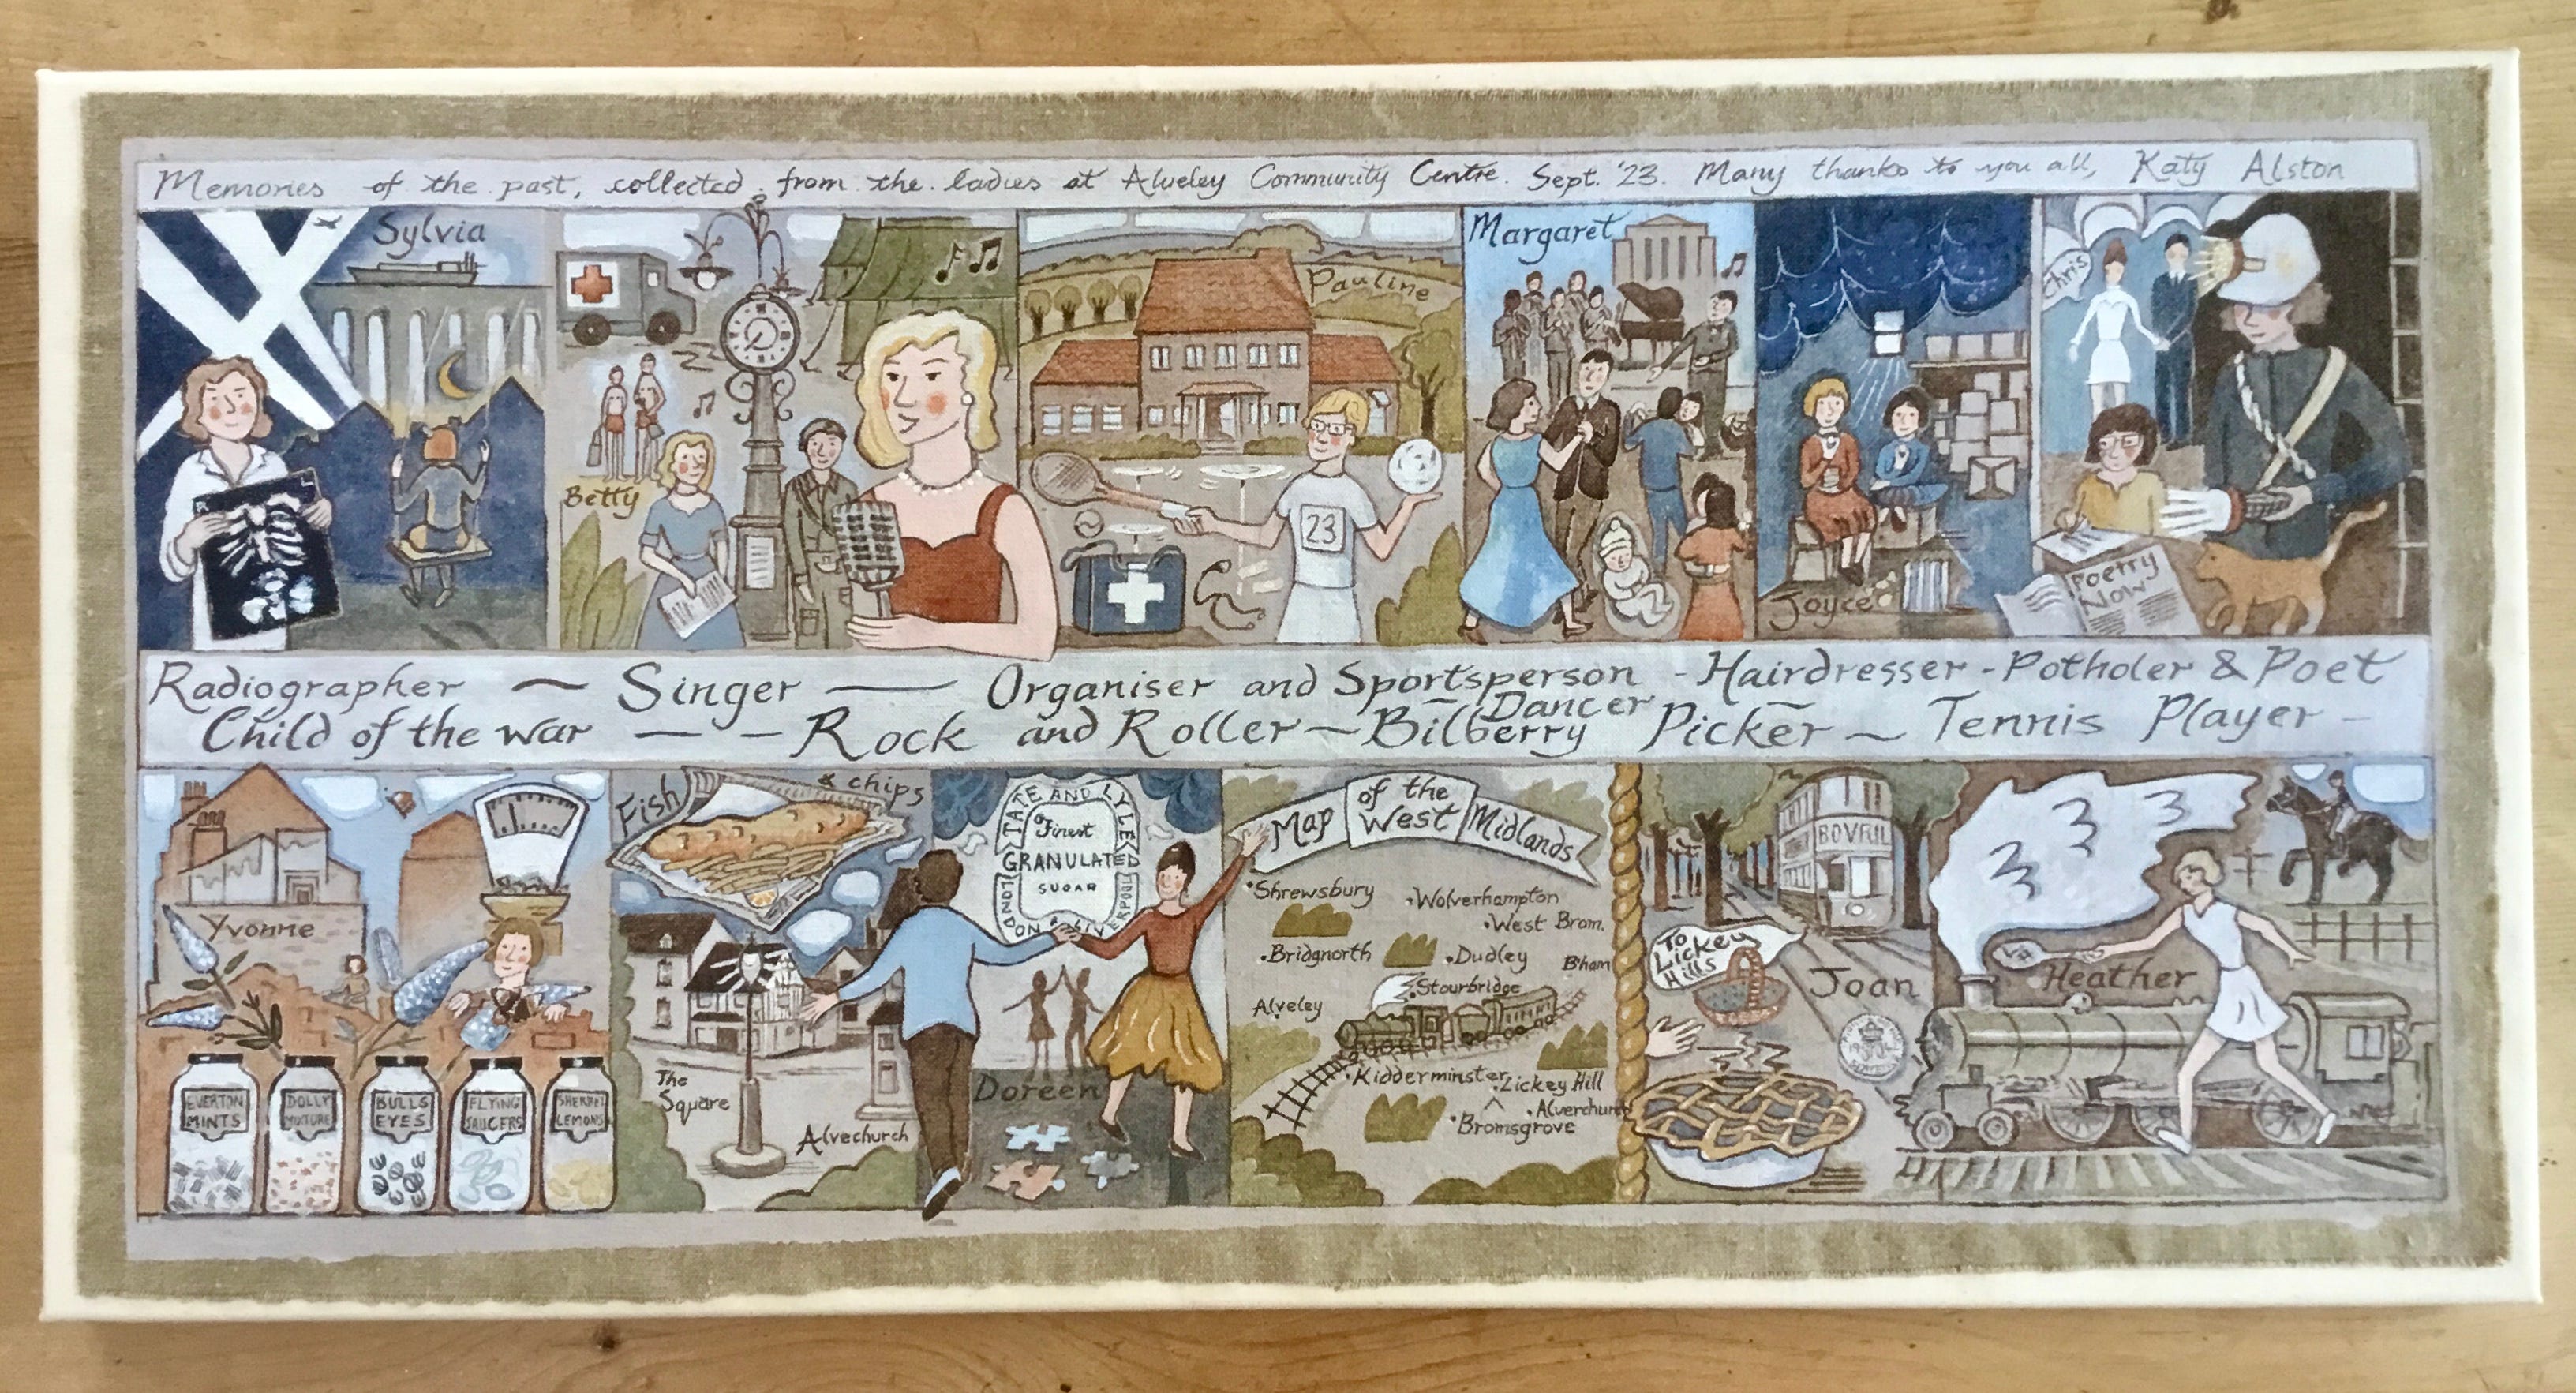 Memories of the past, collected from the ladies at Alveley Community Centre. Sept. '23. Many thanks to you all, Katy Alston
Sylvia
R
L
Betty
Pauline
23
Margaret
Joyce
Chris
Poetry
Now
Radiographer ~ Singer — Organiser and Sportsperson - Hairdresser - Potholer & Poet
Dancer
Child of the war — — Rock and Roller ~ Bilberry Picker ~ Tennis Player –
Yvonne
EVERTON
MINTS
DOLLY
MIXTURE
BULLS
EYES
FLYING
SAUCERS
SHERBET
LEMONS
Fish & chips
The
Square
Alvechurch
TATE AND LYLE
Finest
GRANULATED
SUGAR
LONDON & LIVERPOOL
Doreen
Map of the West Midlands
Shrewsbury
Wolverhampton
West Brom.
Bridgnorth
Dudley
B'ham
Stourbridge
Alveley
Kidderminster
Lickey Hill
Alverchurch
Bromsgrove
BOVRIL
To
Lickey
Hills
Joan
Heather